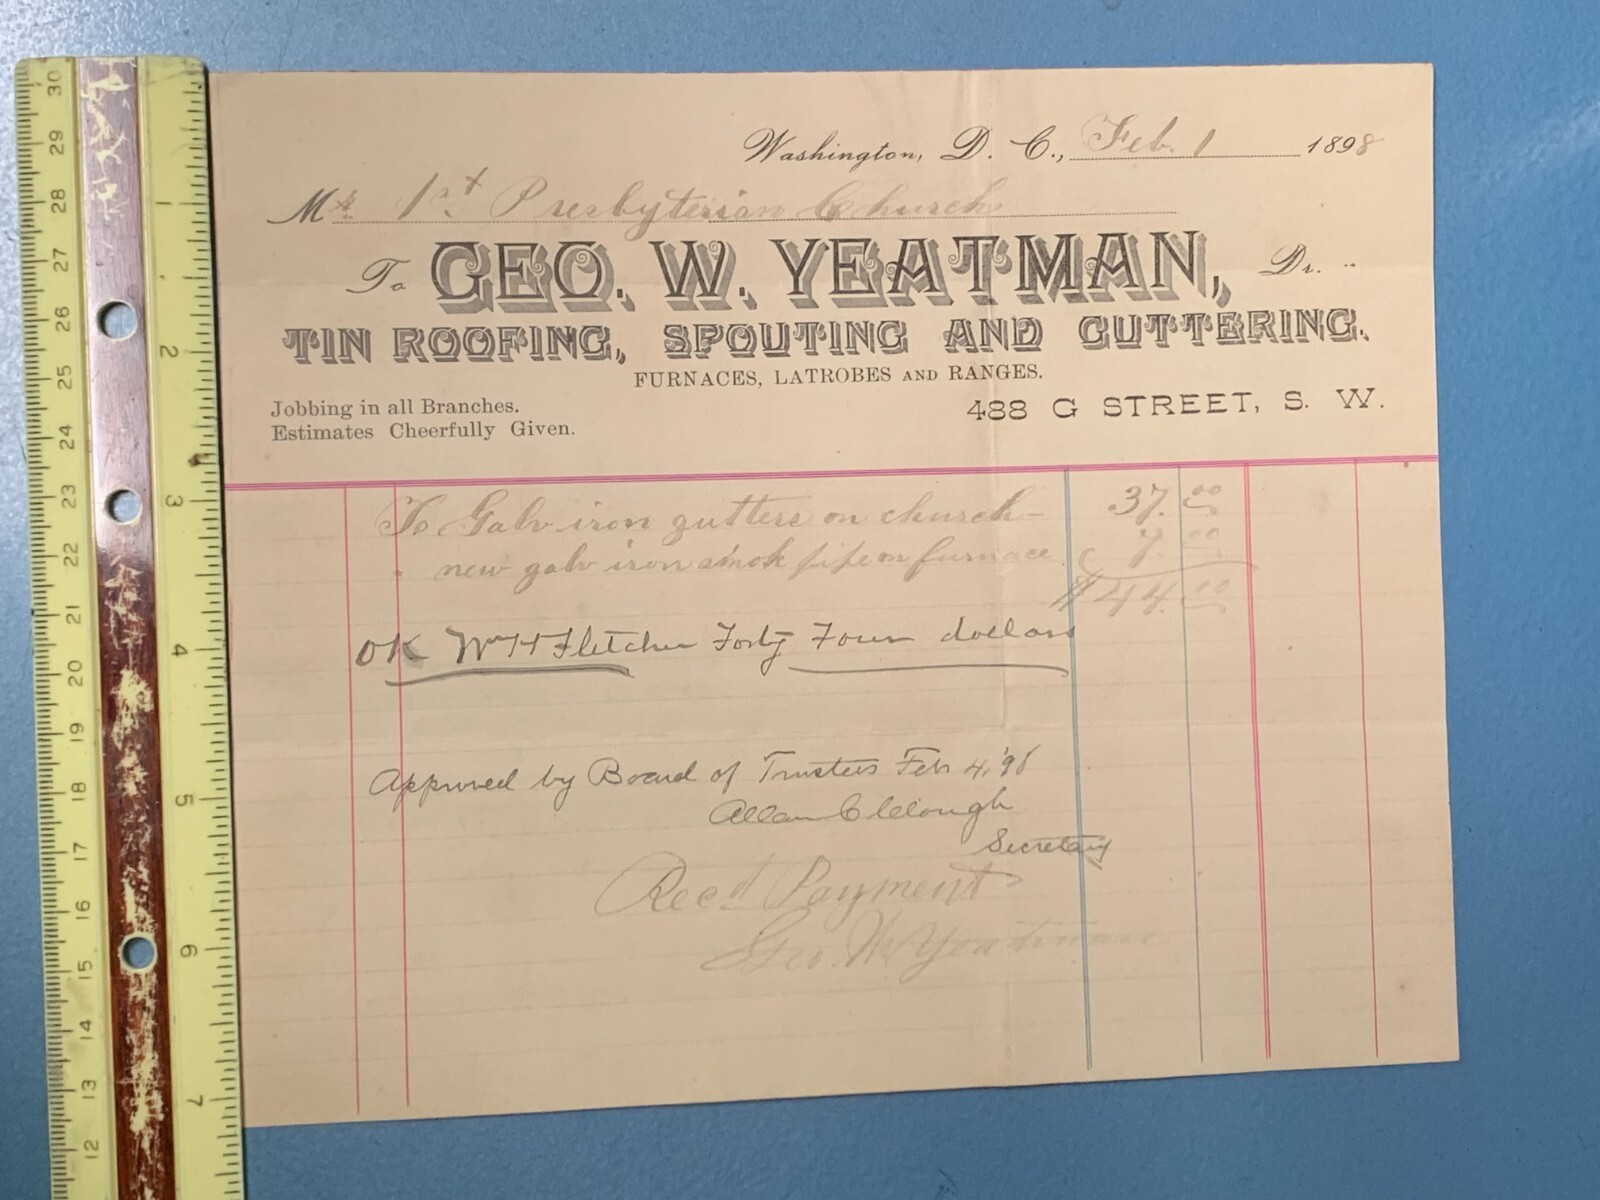 Washington, D. C., Feb. 1 1898
Mr. 1st Presbyterian Church
To GEO. W. YEATMAN, Dr.
TIN ROOFING, SPOUTING AND GUTTERING.
FURNACES, LATROBES AND RANGES.
Jobbing in all Branches.
Estimates Cheerfully Given.
488 G STREET, S. W.
To Galv iron gutters on church - 37.00
" new galv iron smok pipe on furnace 7.00
$44.00
OK Wm H Fletcher Forty Four dollars
Approved by Board of Trustees Feb 4, '98
Allan C Clough
Secretary
Recd Payment
Geo. W. Yeatman
30
29
28
27
26
25
24
23
22
21
20
19
18
17
16
15
14
13
12
1
2
3
4
5
6
7